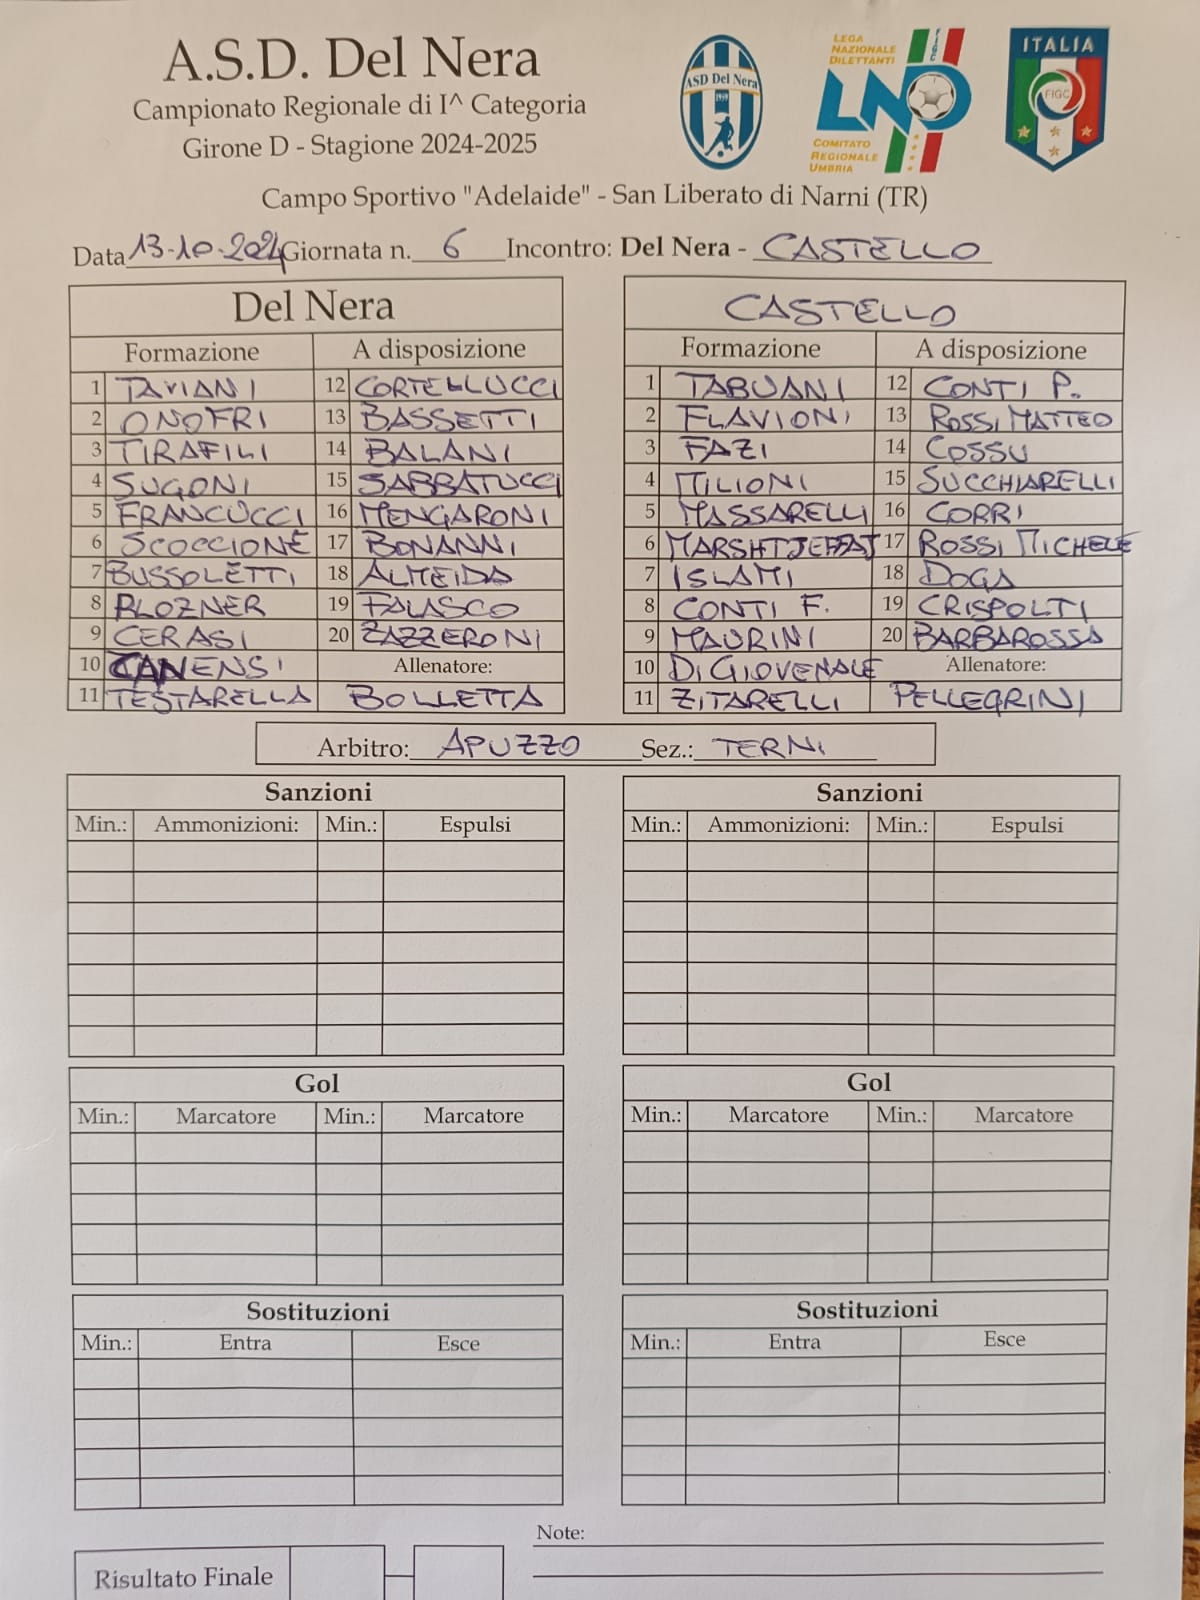 A.S.D. Del Nera
Campionato Regionale di I^ Categoria
Girone D - Stagione 2024-2025
ASD Del Nera
LEGA
NAZIONALE
DILETTANTI
FIGC
LND
COMITATO
REGIONALE
UMBRIA
ITALIA
FIGC
Campo Sportivo "Adelaide" - San Liberato di Narni (TR)
Data 13-10-2024 Giornata n. 6 Incontro: Del Nera - CASTELLO
Del Nera
Formazione A disposizione
1 TAVIANI 12 CORTELLUCCI
2 ONOFRI 13 BASSETTI
3 TIRAFILI 14 BALANI
4 SUGONI 15 SABBATUCCI
5 FRANCUCCI 16 MENGARONI
6 SCOCCIONE 17 BONANNI
7 BUSSOLETTI 18 ALMEIDA
8 PLOZNER 19 FALASCO
9 CERASI 20 ZAZZERONI
10 CANENSI Allenatore:
11 TESTARELLA BOLLETTA
CASTELLO
Formazione A disposizione
1 TABUANI 12 CONTI P.
2 FLAVIONI 13 ROSSI MATTEO
3 FAZI 14 COSSU
4 MILIONI 15 SUCCHIARELLI
5 MASSARELLI 16 CORRI
6 17 ROSSI MICHELE
7 ISLAMI 18 DOGA
8 CONTI F. 19 CRISPOLTI
9 MAURINI 20 BARBAROSSA
10 DI GIOVENALE Allenatore:
11 ZITARELLI PELLEGRINI
Arbitro: APUZZO Sez.: TERNI
Sanzioni
Min.: Ammonizioni: Min.: Espulsi
Sanzioni
Min.: Ammonizioni: Min.: Espulsi
Gol
Min.: Marcatore Min.: Marcatore
Gol
Min.: Marcatore Min.: Marcatore
Sostituzioni
Min.: Entra Esce
Sostituzioni
Min.: Entra Esce
Risultato Finale
Note: